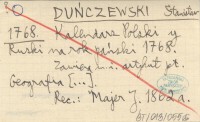 O DUŃCZEWSKI Stanisław
1768. Kalendarz Polski y
Ruski na rok pański 1768.
Zawiera m.in. artykuł pt.
Geografia [...].
Rec.: Majer J. 1862 r.
BJ/018/055